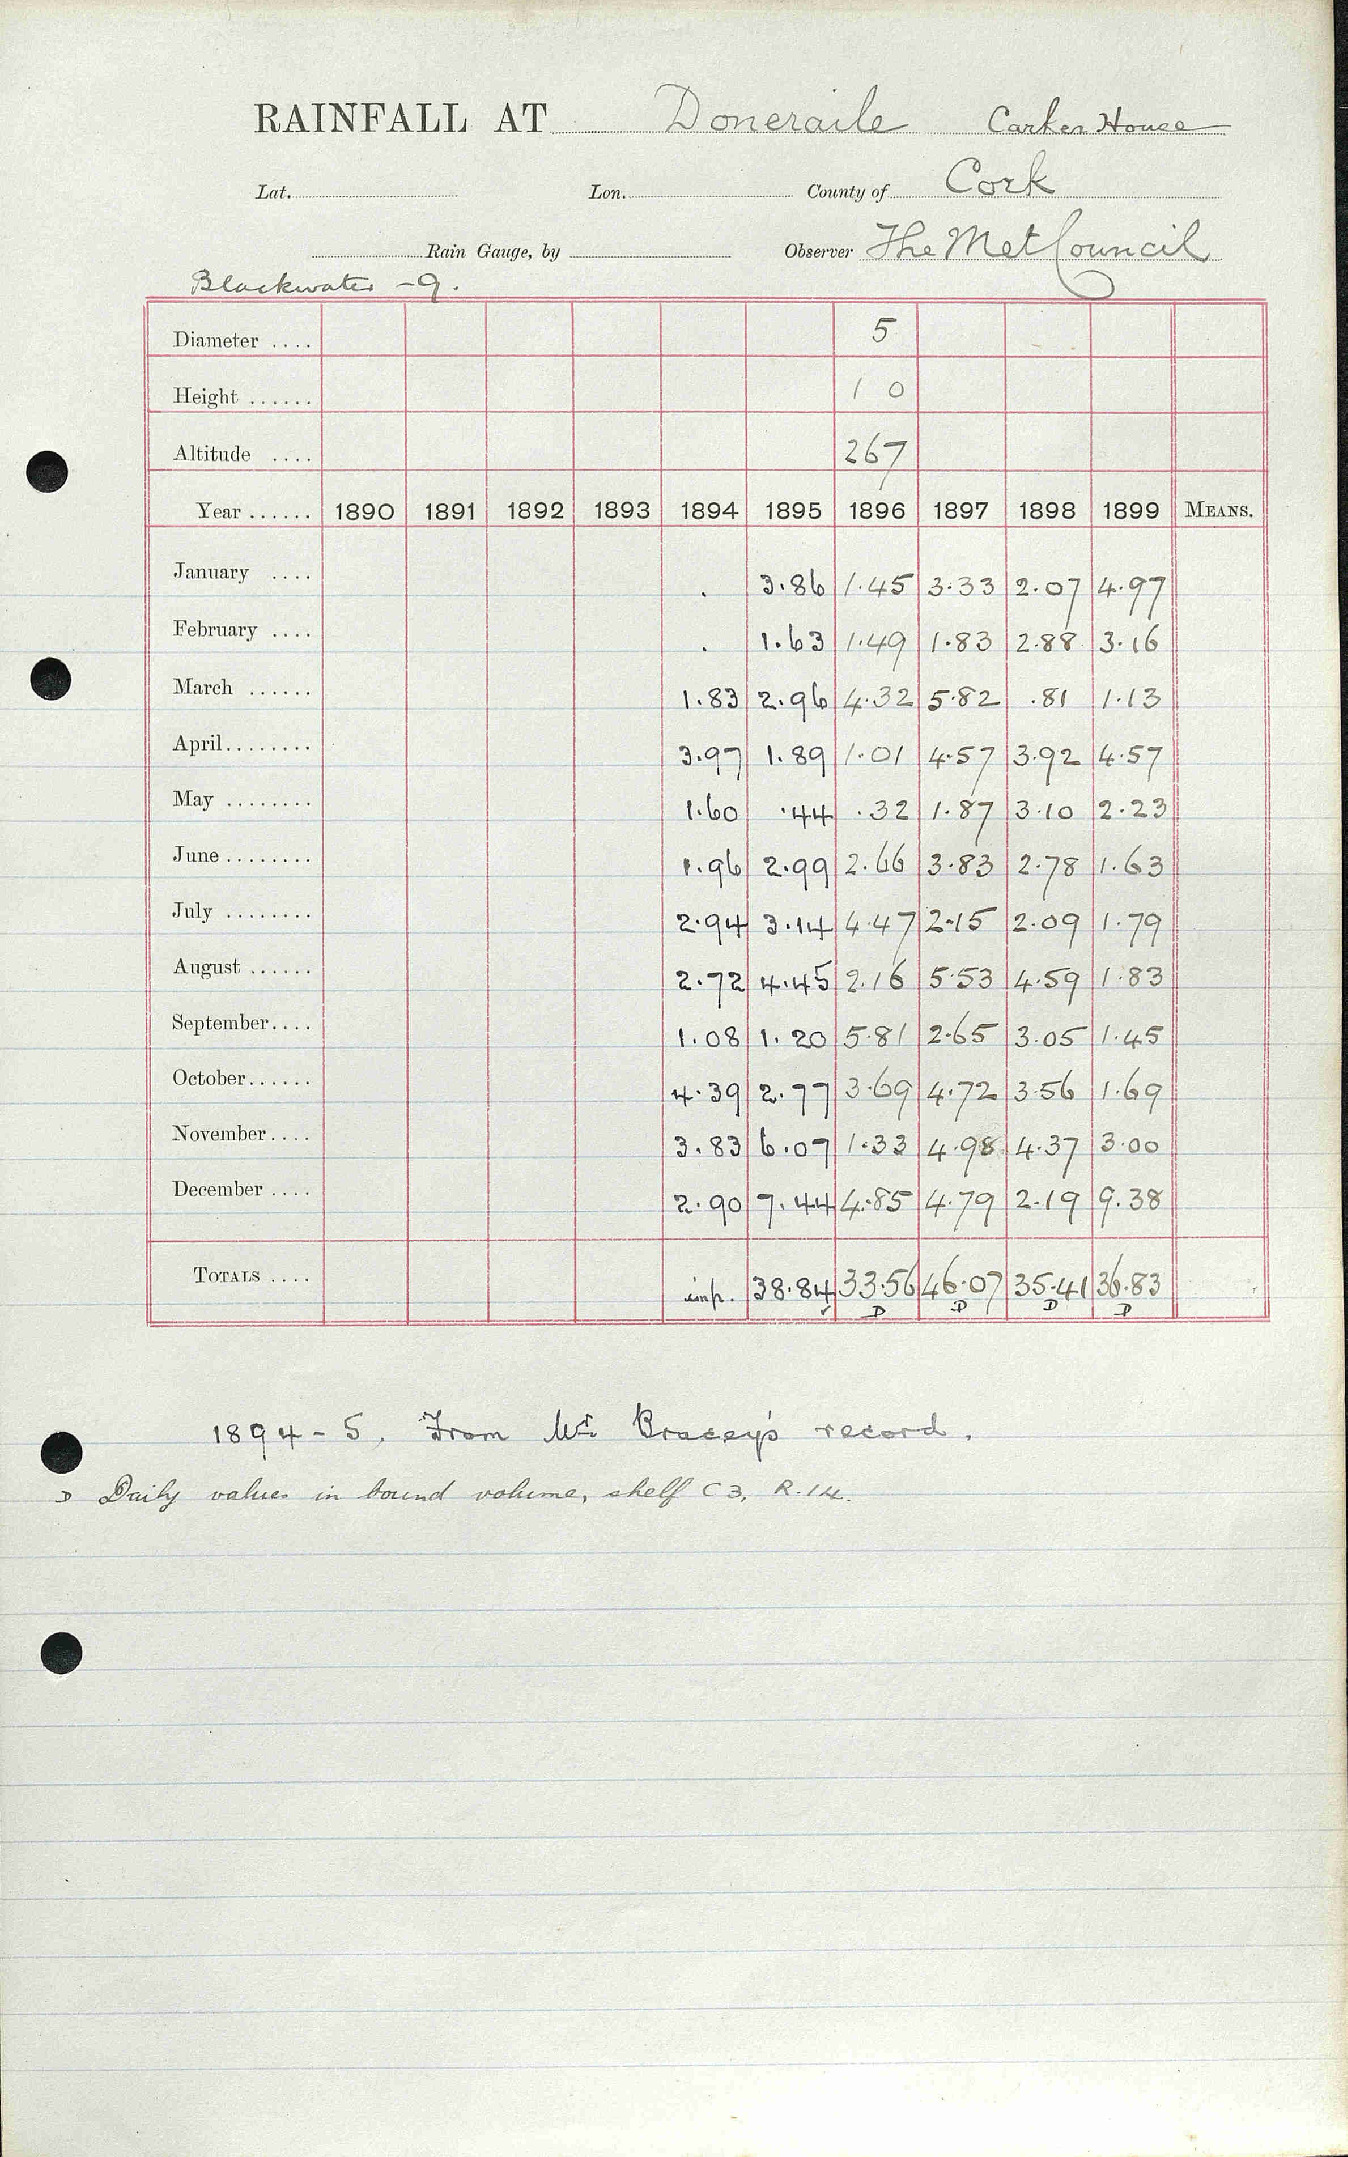 RAINFALL AT Doneraile Carker House
Lat. Lon. County of Cork
Rain Gauge, by Observer The Met Council
Blackwater - 9.
Diameter .... 5
Height ...... 1 0
Altitude .... 267
Year ...... 1890 1891 1892 1893 1894 1895 1896 1897 1898 1899 MEANS.
January .... . 3.86 1.45 3.33 2.07 4.97
February .... . 1.63 1.49 1.83 2.88 3.16
March ...... 1.83 2.96 4.32 5.82 .81 1.13
April........ 3.97 1.89 1.01 4.57 3.92 4.57
May ........ 1.60 .44 .32 1.87 3.10 2.23
June ........ 1.96 2.99 2.66 3.83 2.78 1.63
July ........ 2.94 3.14 4.47 2.15 2.09 1.79
August ...... 2.72 4.45 2.16 5.53 4.59 1.83
September.... 1.08 1.20 5.81 2.65 3.05 1.45
October...... 4.39 2.77 3.69 4.72 3.56 1.69
November.... 3.83 6.07 1.33 4.98 4.37 3.00
December .... 2.90 7.44 4.85 4.79 2.19 9.38
TOTALS .... imp. 38.84 33.56 46.07 35.41 36.83
D D D D
1894-5. From Mr. Bracey's record.
D Daily values in bound volume, shelf C3, R.14.